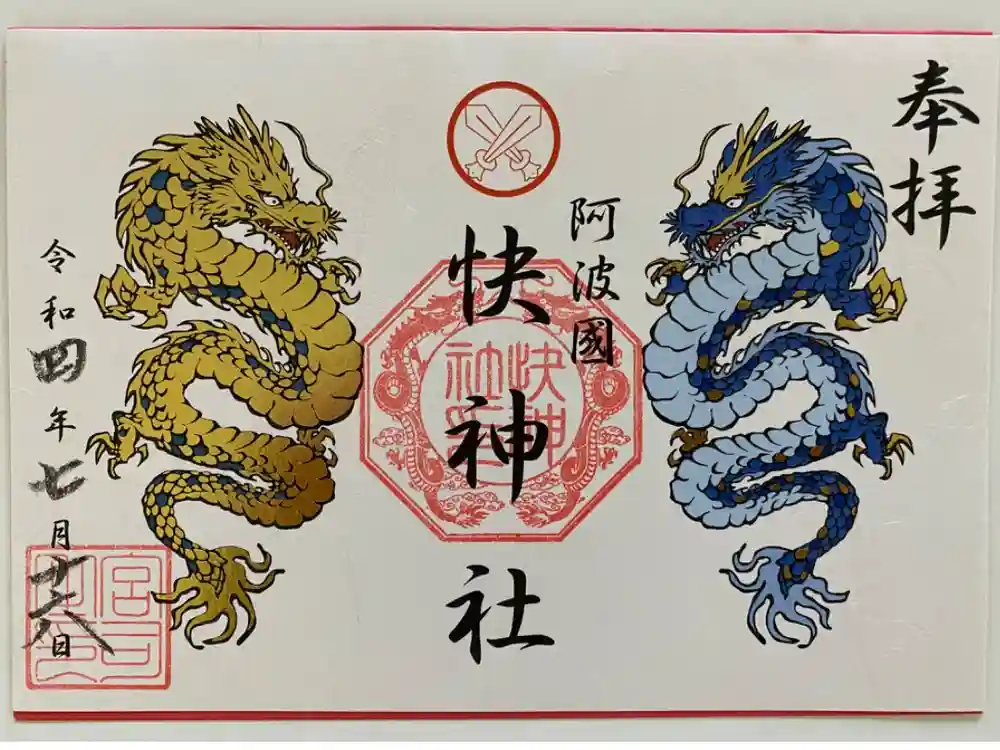 奉拝
阿波國
快神社
快神
社印
令和四年七月十六日
宮司
之印